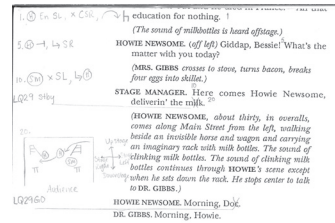 education for nothing.
(The sound of milkbottles is heard offstage.)
HOWIE NEWSOME. (off left) Giddap, Bessie! What's the
matter with you today?
(MRS. GIBBS crosses to stove, turns bacon, breaks
four eggs into skillet.)
STAGE MANAGER. Here comes Howie Newsome,
deliverin' the milk.
(HOWIE NEWSOME, about thirty, in overalls,
comes along Main Street from the left, walking
beside an invisible horse and wagon and carrying
an imaginary rack with milk bottles. The sound of
clinking milk bottles. The sound of clinking milk
bottles continues through HOWIE'S scene except
when he sets down the rack. He stops center to talk
to DR. GIBBS.)
HOWIE NEWSOME. Morning, Doc.
DR. GIBBS. Morning, Howie.
LQ29 Stby
Audience
LQ29GO